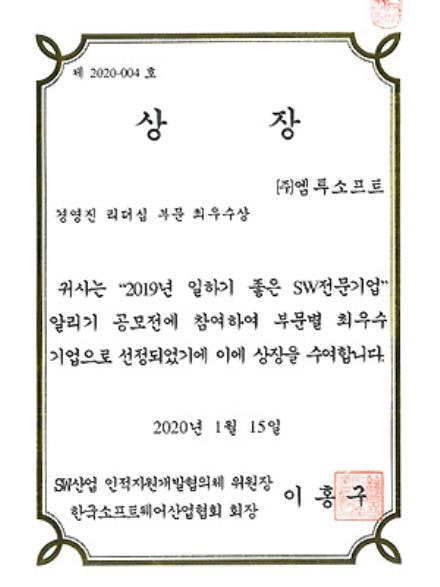 제 2020-004 호
상 장
(주)엠투소프트
경영진 리더십 부문 최우수상
귀사는 "2019년 일하기 좋은 SW전문기업"
알리기 공모전에 참여하여 부문별 최우수
기업으로 선정되었기에 이에 상장을 수여합니다.
2020년 1월 15일
SW산업 인적자원개발협의체 위원장
한국소프트웨어산업협회 회장
이 홍 구